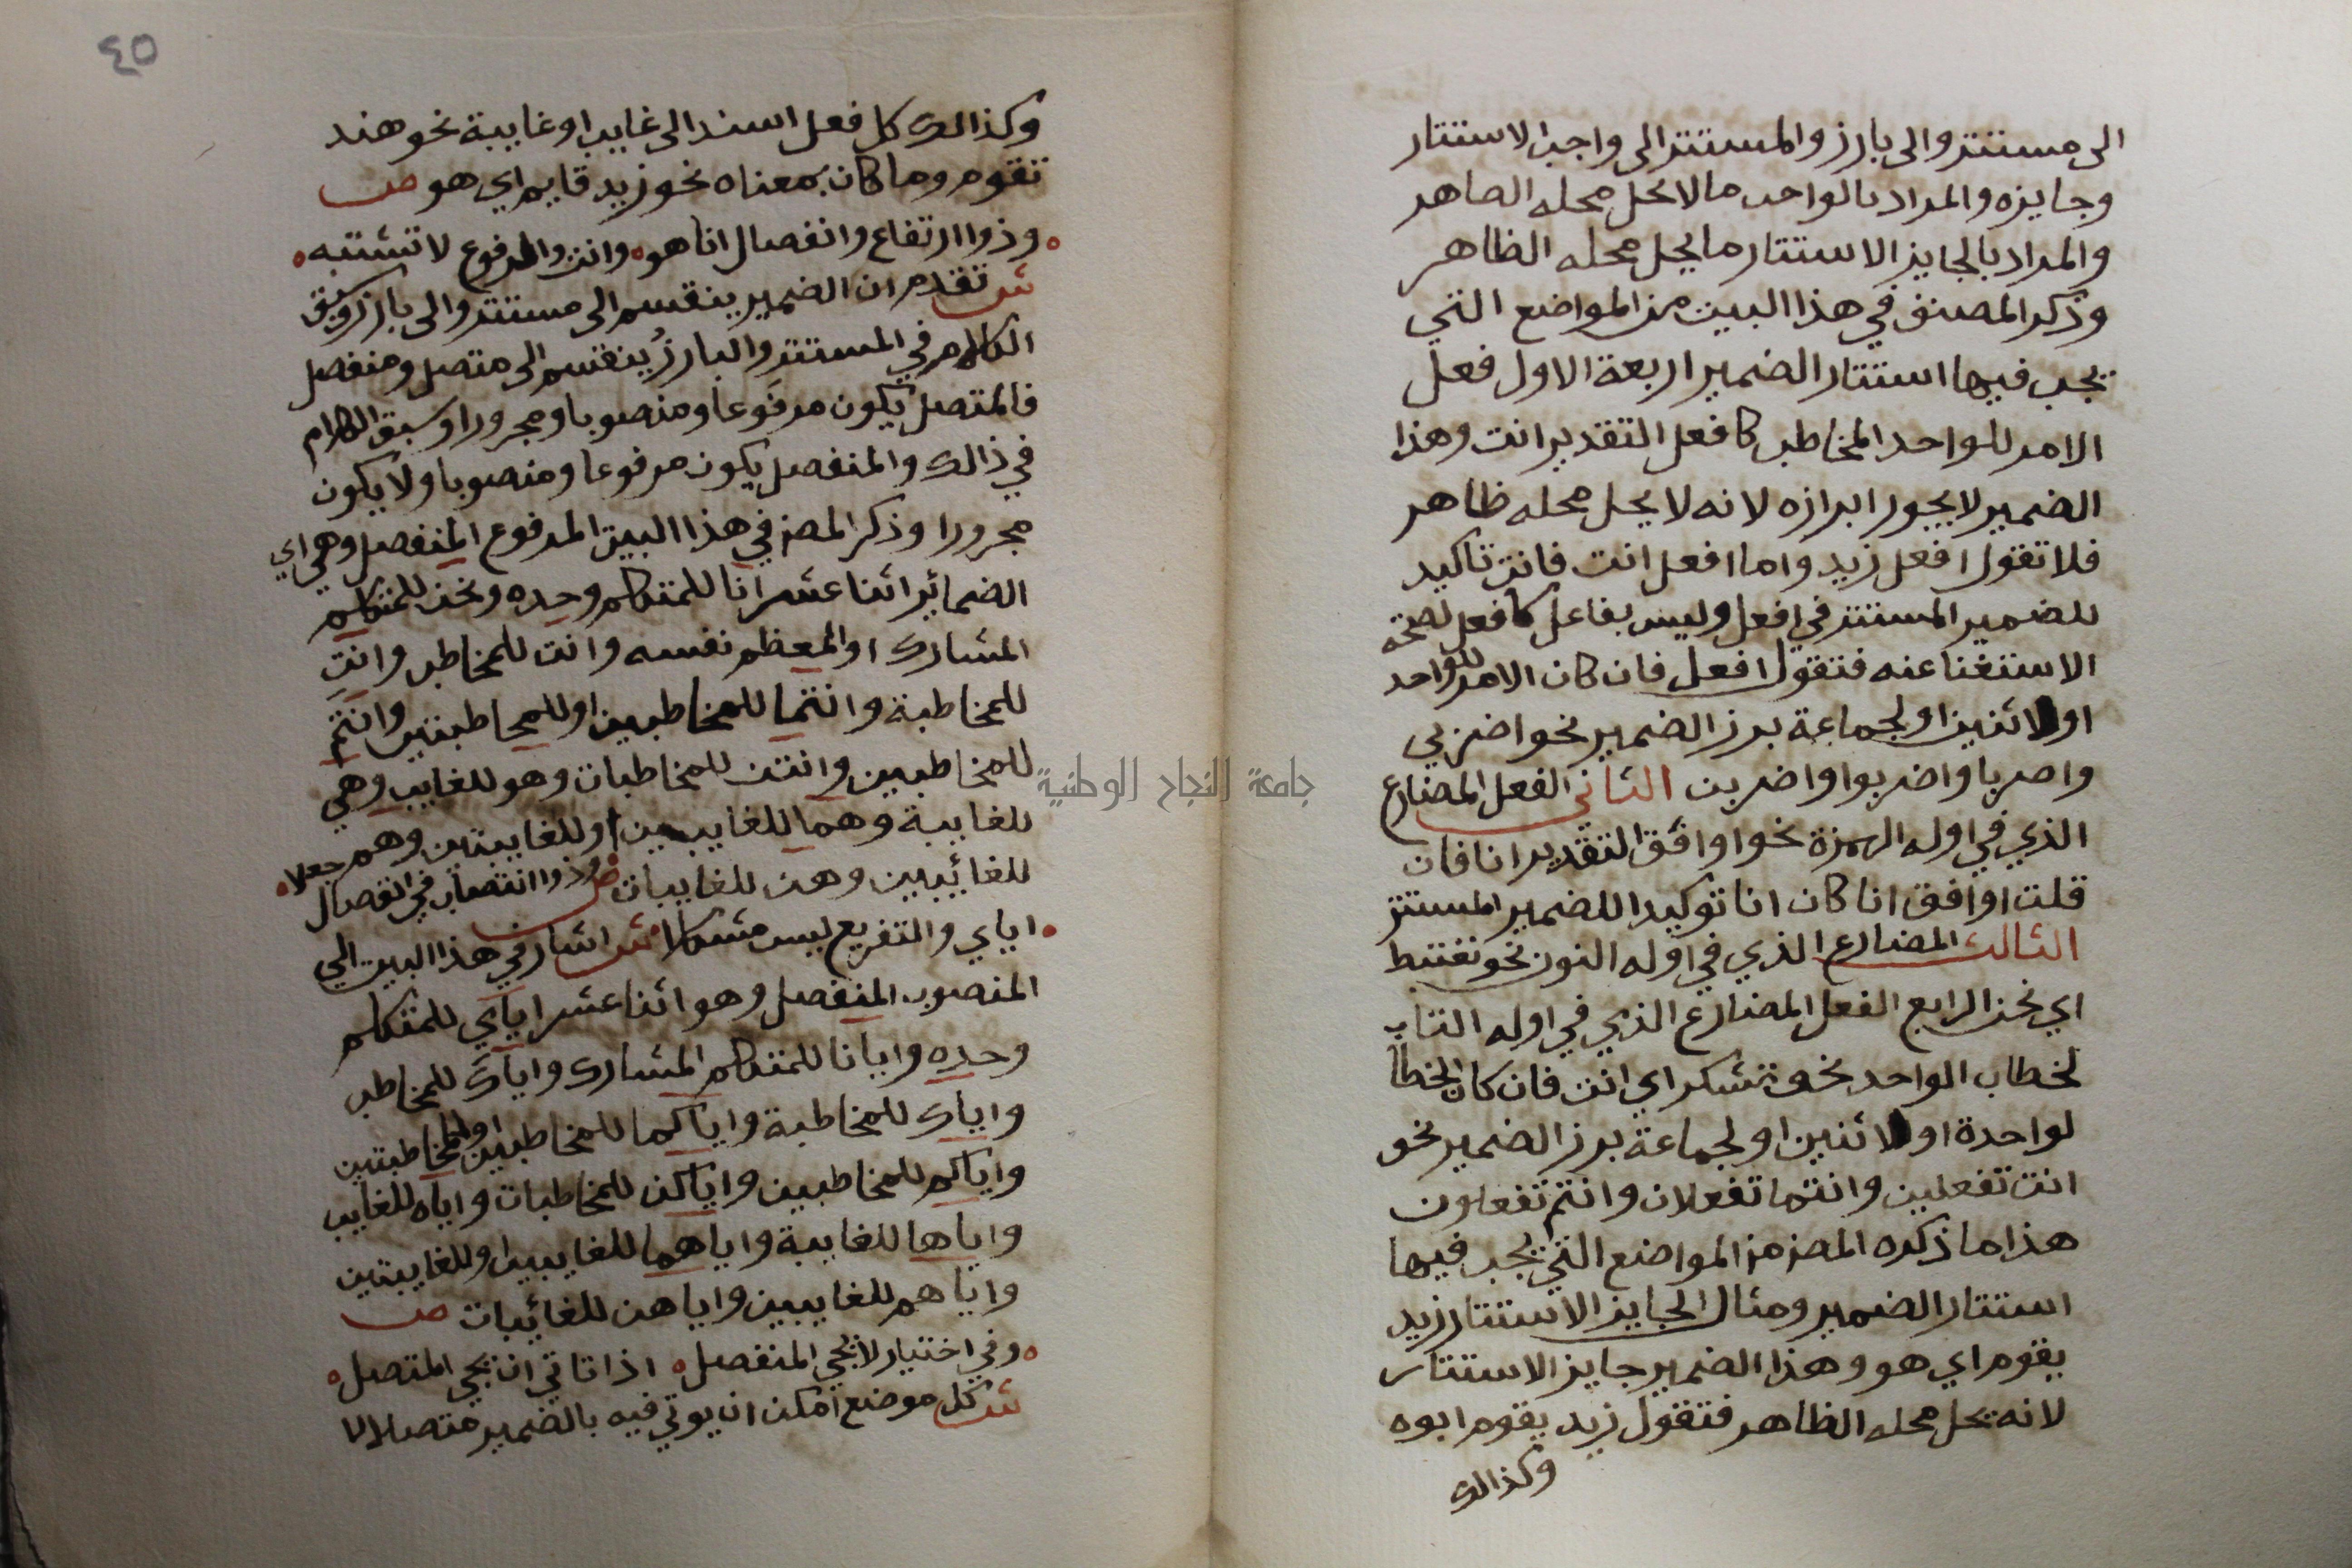 الى مستتر والى بارز والمستتر الى واجب الاستتار
وجايزه والمراد بالواجب ما لا يحل محله الظاهر
والمراد بالجايز الاستتار ما يحل محله الظاهر
وذكر المصنف في هذا البيت من المواضع التي
يجب فيها استتار الضمير اربعة الاول فعل
الامر للواحد المخاطب كافعل التقدير انت وهذا
الضمير لا يجوز ابرازه لانه لا يحل محله ظاهر
فلا تقول افعل زيد واما افعل انت فانت تاكيد
للضمير المستتر في افعل وليس بفاعل كافعل لصحة
الاستغنا عنه فتقول افعل فان كان الامر للواحد
او لاثنين او لجماعة برز الضمير نحو اضربي
واضربا واضربوا واضربن الثاني الفعل المضارع
الذي في اوله الهمزة نحو اوافق التقدير انا فان
قلت اوافق انا كان انا توكيدا للضمير المستتر
الثالث المضارع الذي في اوله النون نحو نغتبط
اي نحن الرابع الفعل المضارع الذي في اوله التاء
لخطاب الواحد نحو تشكر اي انت فان كان الخطاب
لواحدة او لاثنين او لجماعة برز الضمير نحو
انت تفعلين وانتما تفعلان وانتم تفعلون
هذا ما ذكره المص من المواضع التي يجب فيها
استتار الضمير ومثال الجايز الاستتار زيد
يقوم اي هو وهذا الضمير جايز الاستتار
لانه يحل محله الظاهر فتقول زيد يقوم ابوه
وكذالك
٤٥
وكذالك كل فعل اسند الى غايب او غايبة نحو هند
تقوم وما كان بمعناه نحو زيد قايم اي هو ص
وذوا ارتفاع وانفصال انا هو وانت والمرفوع لا تشتبه
ش تقدم ان الضمير ينقسم الى مستتر والى بارز وسبق
الكلام في المستتر والبارز ينقسم الى متصل ومنفصل
فالمتصل يكون مرفوعا ومنصوبا ومجرورا وسبق الكلام
في ذالك والمنفصل يكون مرفوعا ومنصوبا ولا يكون
مجرورا وذكر المص في هذا البيت المرفوع المنفصل وهي اي
الضمائر اثنا عشر انا للمتكلم وحده ونحن للمتكلم
المشارك او المعظم نفسه وانت للمخاطب وانتِ
للمخاطبة وانتما للمخاطبين او للمخاطبتين وانتم
للمخاطبين وانتن للمخاطبات وهو للغايب وهي
للغايبة وهما للغايبين او للغايبتين وهم
للغائبين وهن للغايبات ص وذوا انتصاب في انفصال جعلا
اياي والتفريع ليس مشكلا ش اشار في هذا البيت الي
المنصوب المنفصل وهو اثنا عشر اياي للمتكلم
وحده وايانا للمتكلم المشارك واياكَ للمخاطب
واياك للمخاطبة واياكما للمخاطبين او للمخاطبتين
واياكم للمخاطبين واياكن للمخاطبات واياه للغايب
واياها للغايبة واياهما للغايبين او للغايبتين
واياهم للغايبين واياهن للغائبات ص
وفي اختيار لا يجي المنفصل اذا تاتي ان يجي المتصل
ش كل موضع امكن ان يوتي فيه بالضمير متصلا لا
جامعة النجاح الوطنية